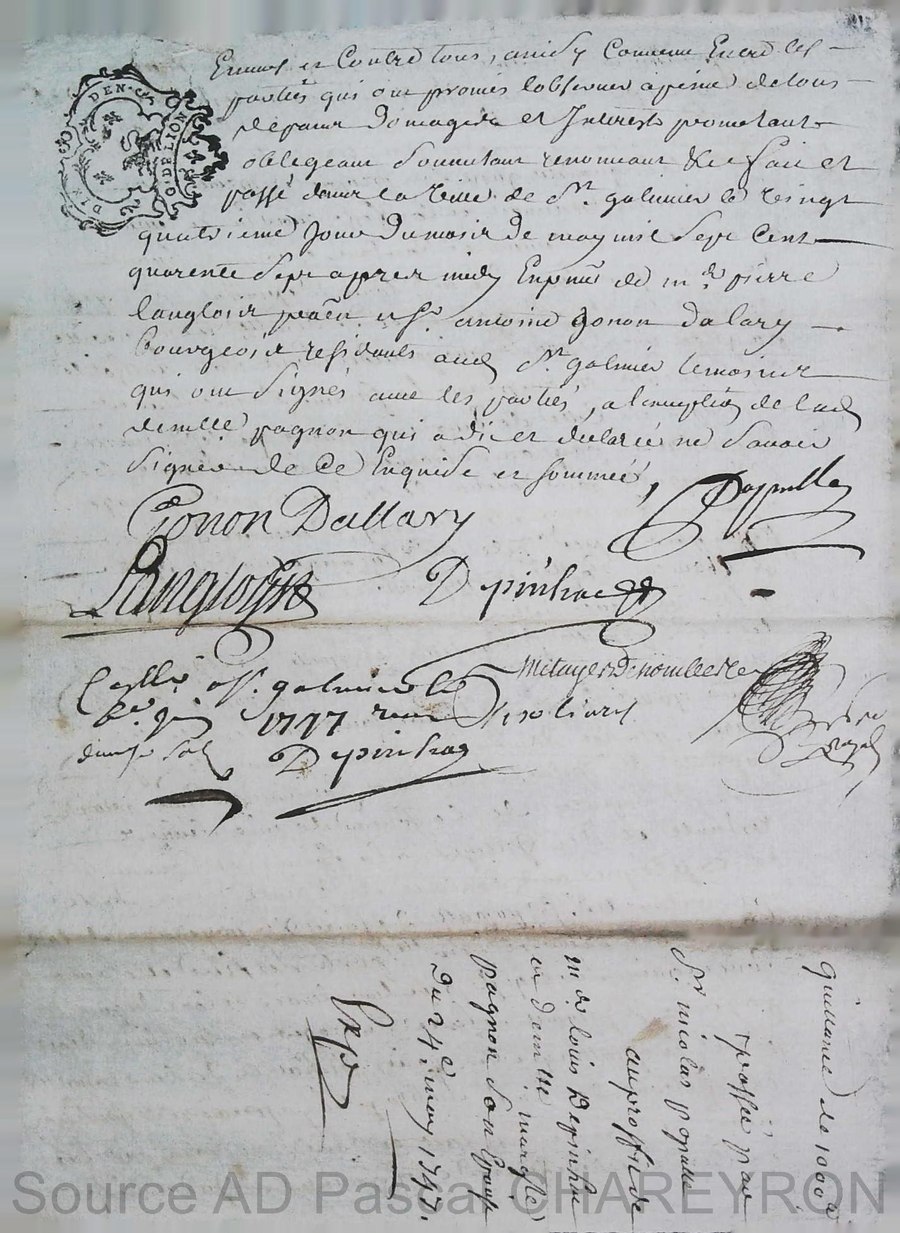 DEN.
G. DE LION
Envers et Contre tous, ainsy Convenu Entre les
partiës qui ont promis l'observer a peine de tous
depans Domages et Interests promettant
obligeant Soumettant renonceant &c fait et
passé dans la ville de St. galmier le vingt
quatrieme Jour du mois de may mil Sept Cent
quarente Sept apres midy En pnce de me. pierre
langlois et Sr. antoine gonon dalary
bourgeois residants aud St. galmier temoins
qui ont Signés avec les partiës, a l'exception de lad
demlle pagnon qui a dit et declaré ne Savoir
Signer de Ce Enquise et sommeé,
Gonon Dallary
Langlois
Depinhac
a St. galmier le
1747 livres
Sols
Depinhac
royal
quittance de 1000 #
passée par
Sr. nicolas
au proffit de
me louis Depinhac
et dlle
pagnon Son Epouse
Du 24e. may 1747.
Exp
Source AD Pascal CHAREYRON